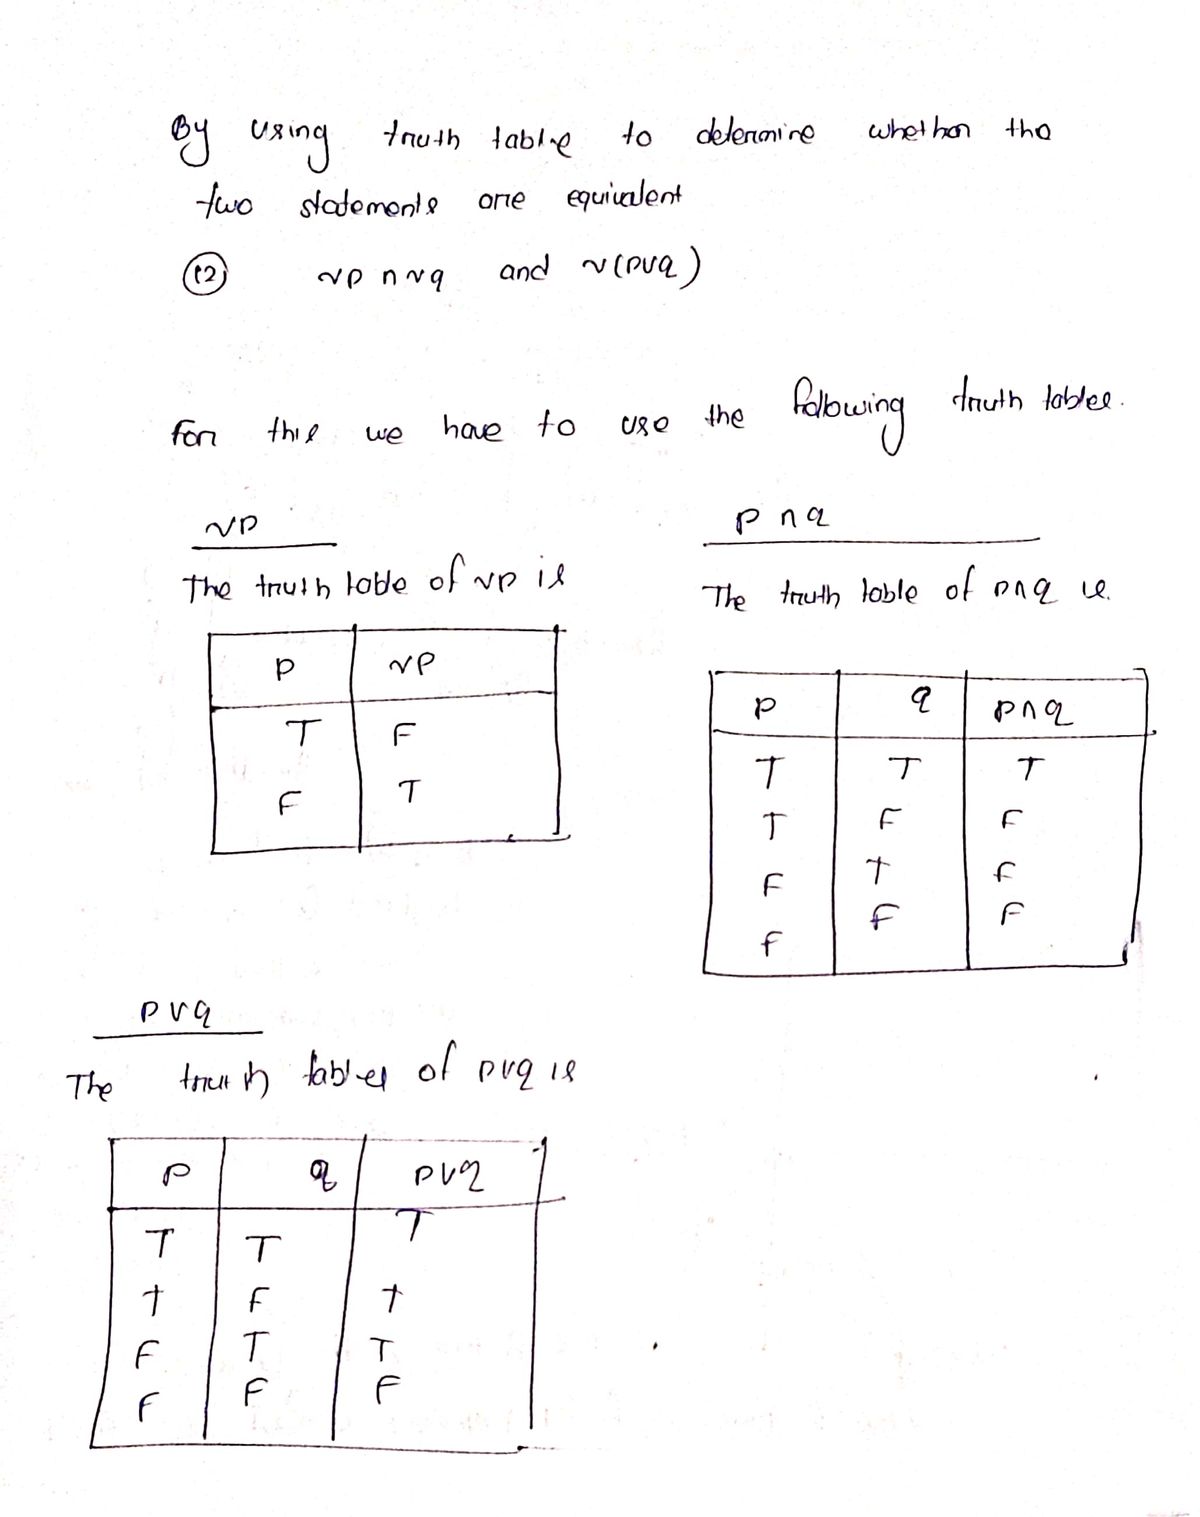 By using truth table to determine whether the
two statements are equivalent
(12) ~p ∧ ~q and ~(p∨q)
For this we have to use the following truth tables.
~p
The truth table of ~p is
p ~p
T F
F T
p ∧ q
The truth table of p∧q is.
p q p∧q
T T T
T F F
F T F
F F F
p∨q
The truth tables of p∨q is
p q p∨q
T T T
T F T
F T T
F F F